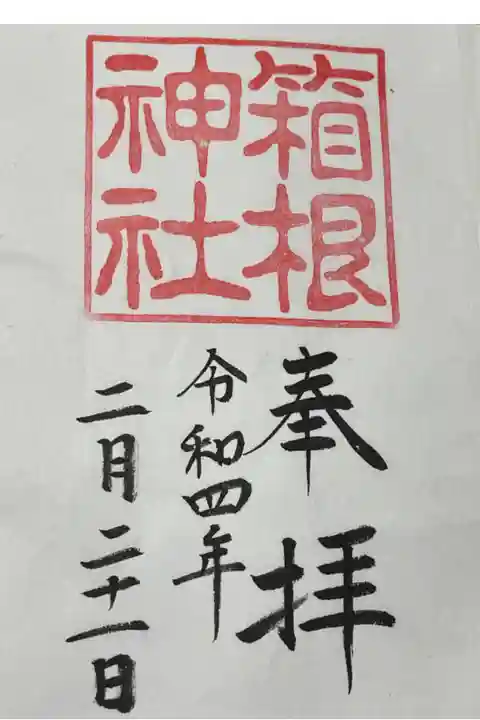 箱根
神社
奉拝
令和四年
二月二十一日